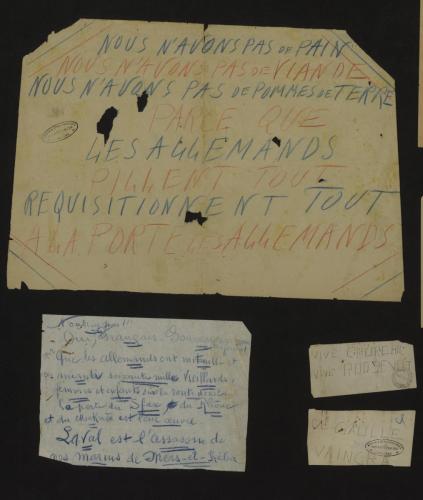 NOUS N'AVONS PAS de PAIN
NOUS N'AVONS PAS de VIANDE
NOUS N'AVONS PAS de POMMES de TERRE
PARCE QUE
LES ALLEMANDS
PILLENT TOUT
REQUISITIONNENT TOUT
A LA PORTE LES ALLEMANDS
N'oublions pas!!!
Oui, Français
Que les allemands ont mitraillé et
soixante mille vieillards,
femmes et enfants sur la route
La perte du
et du est leur œuvre
Laval est l'assassin de
nos marins de Mers-el-Kébir
VIVE CHURCHILL
VIVE ROOSEVELT
GAULLE
VAINCRA